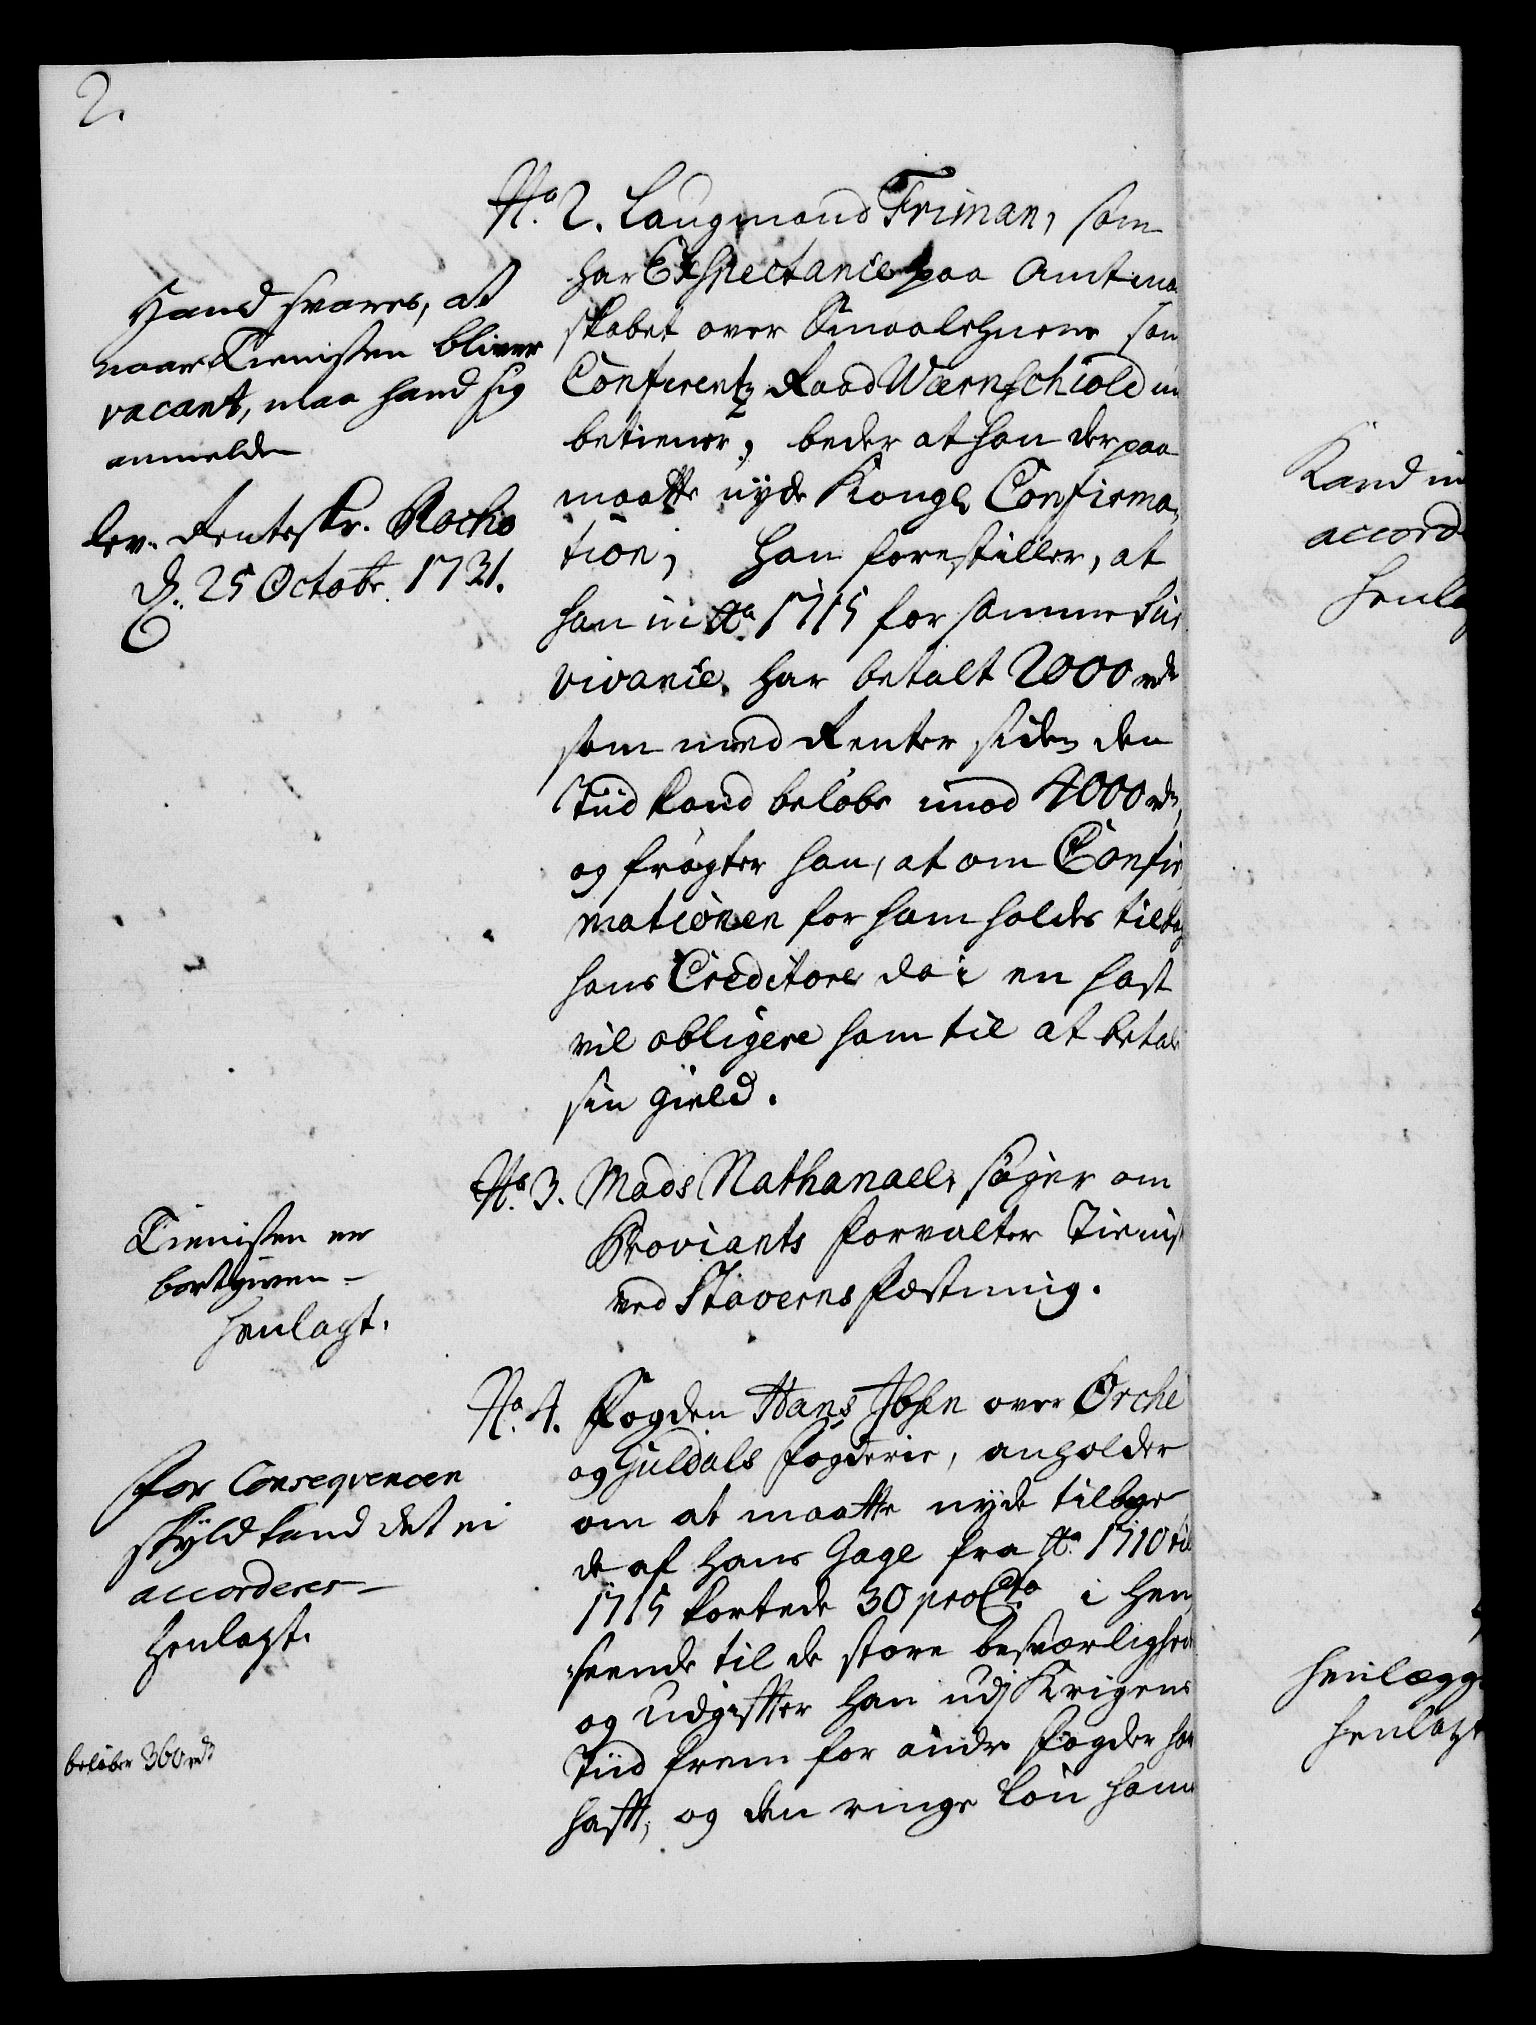 2.
No. 2. Laugmand Friman, som
har Exspectance paa Amtma
skabet over Smaalehnene som
Conferentz Raad Wærnschiold nu
betiener, beder at han derpaa
maatte nyde Kongl. Confirma
tion, han forestiller, at
han in Ao. 1715 for samme Sur
vivance har betalt 2000 rdr
som med Renter siden den
Tiid kand beløbe imod 4000 rdr,
og frøgter han, at om Confir
mationen for ham holdes tilbag
hans Creditorer da i en hast
vil obligere ham til at betale
sin gield.
Hand svares, at
naar Tienisten bliver
vacant, maa hand sig
anmelde
lev. Renteskr. Rocho
d. 25 Octobr. 1731.
No. 3. Mads Nathanael, søger om
Proviants Forvalter Tienist
ved Staverns Fæstning.
Tienisten er
bortgiven -
Henlagt.
No. 4. Fogden Hans Ibsen over Orche
og Guldals Fogderie, anholder
om at maatte nyde tilbage
de af hans Gage fra Ao. 1710 til
1715 kortede 30 proCto i Hen
seende til de store besværlighed
og udgifter han udj Krigens
Tiid frem for andre Fogder har
hafft, og den ringe Løn ham
For Conseqvencen
skyld kand det ei
accorderes -
Henlagt.
beløber 360 rdr
Kand in
accord
Henla
Henlægg
Henlagt